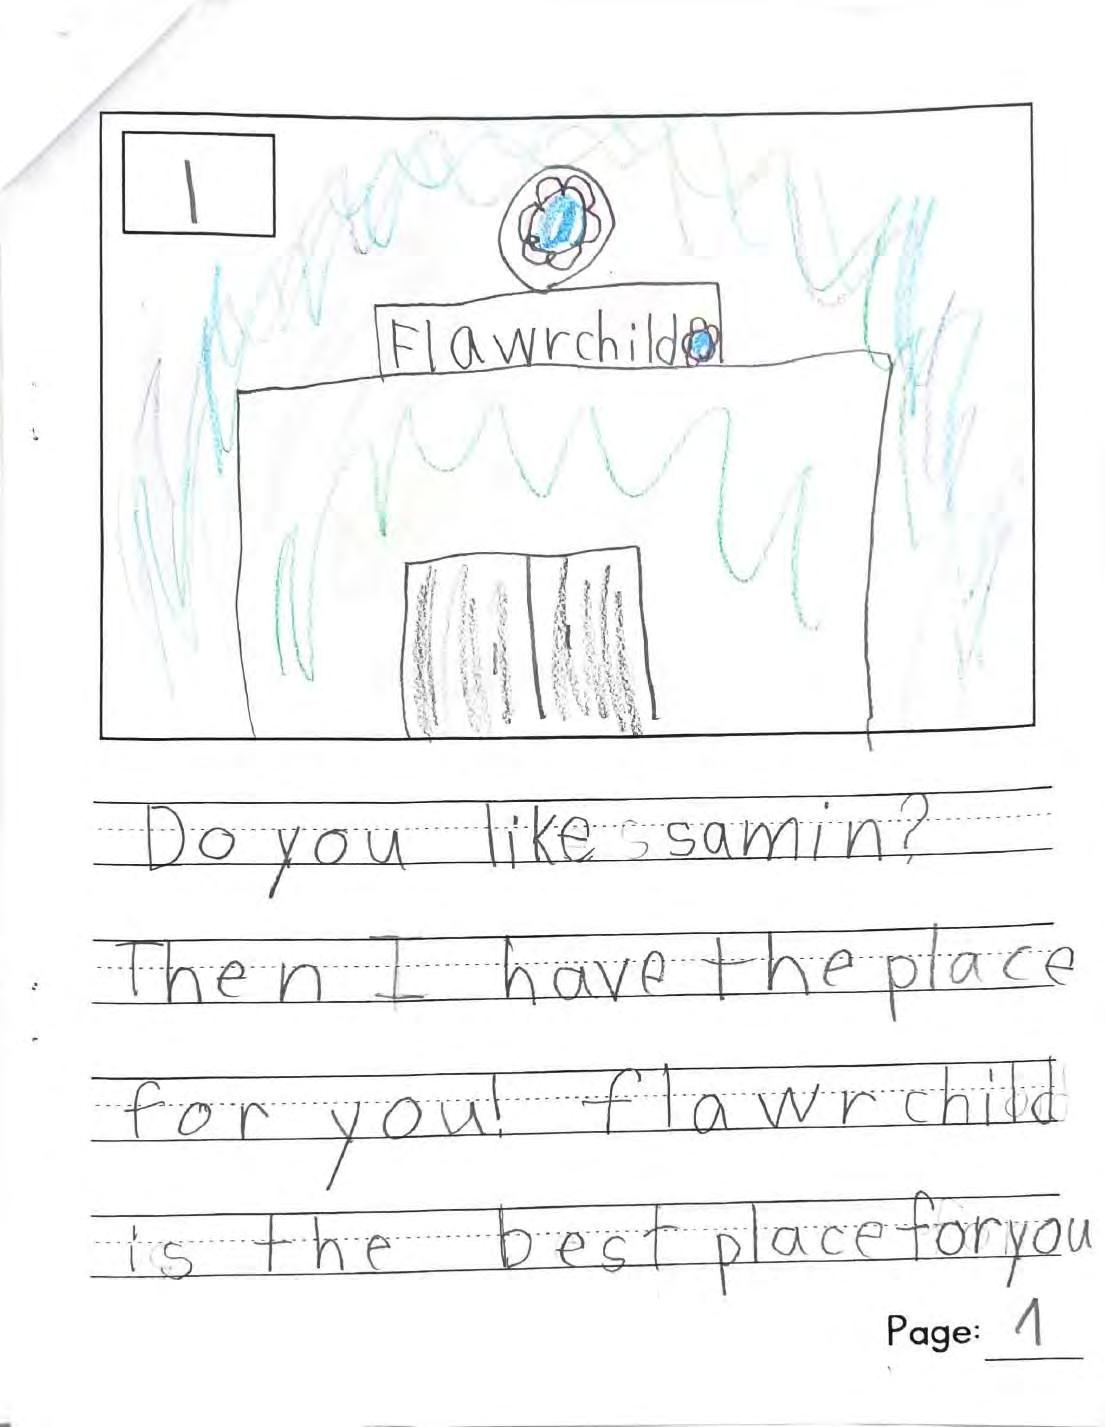 1
Flawrchild
Do you like samin?
Then I have the place
for you! flawrchild
is the best place for you
Page: 1